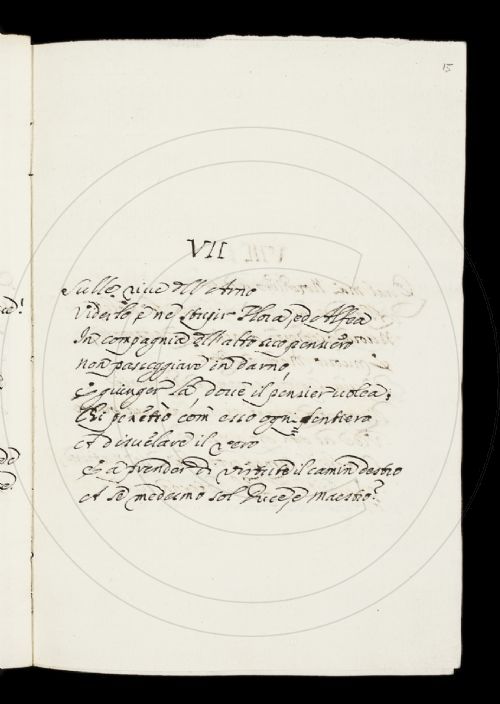 15
VII
Sulle rive dell'Arno
Viderlo, e ne stupir Flora, ed Alfea
In compagnia dell'alto suo pensiero
non passeggiare in darno,
E giunger là, dove il pensier volea;
Ei penetrò com esso ogni sentiero
A disvelare il vero
E a prender di virtute il camin destro
A se medesmo sol Duce, e maestro.